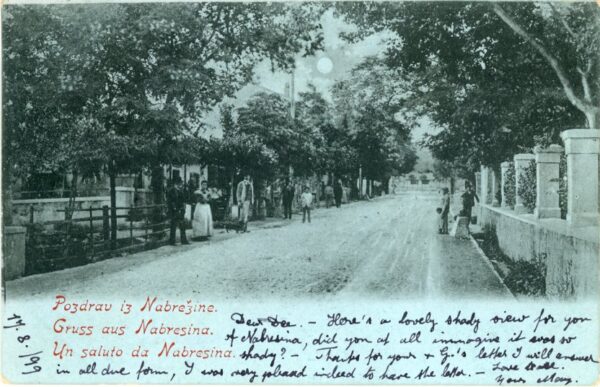 Pozdrav iz Nabrežine.
Gruss aus Nabresina.
Un saluto da Nabresina.
17.8./99
Dear Dee. - Here's a lovely shady view for you
of Nabresina, did you at all immagine it was so
shady? - Thanks for your & G's letter I will answer
in all due form, I was very pleased indeed to have the letter. - Love
Your